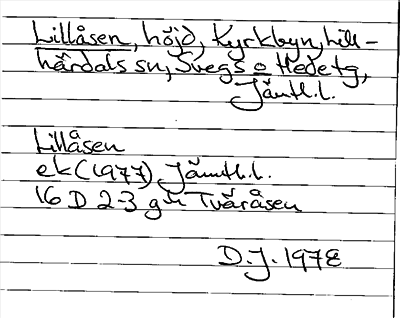 Lillåsen, höjd, Kyrkbyn, Lill-
härdals sn, Svegs o Hedetg,
Jämtl.l.
Lillåsen
ek (1977) Jämtl.l.
16 D 2-3 g-h Tväråsen
D.J. 1978